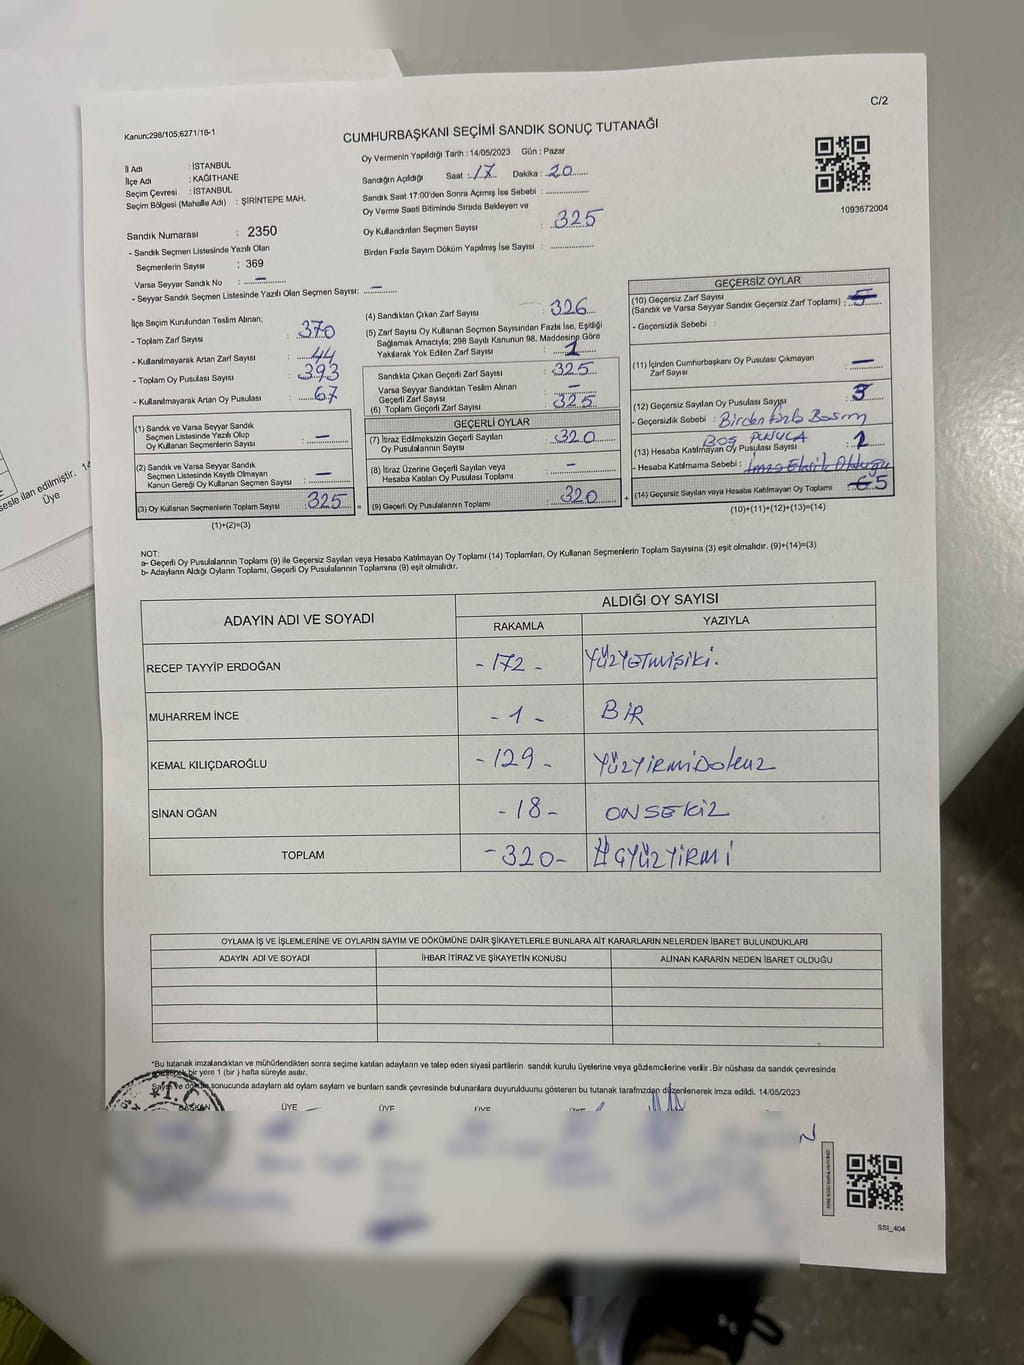 C/2
Kanun;298/105;6271/16-1
CUMHURBAŞKANI SEÇİMİ SANDIK SONUÇ TUTANAĞI
İl Adı : İSTANBUL
İlçe Adı : KAĞITHANE
Seçim Çevresi : İSTANBUL
Seçim Bölgesi (Mahalle Adı) : ŞİRİNTEPE MAH.
Oy Vermenin Yapıldığı Tarih : 14/05/2023 Gün : Pazar
Sandığın Açıldığı Saat : 17 Dakika : 20
Sandık Saat 17:00'den Sonra Açımış İse Sebebi :
Oy Verme Saati Bitiminde Sırada Bekleyen ve
Oy Kullandırılan Seçmen Sayısı : 325
Birden Fazla Sayım Döküm Yapılmış İse Sayısı :
1093672004
Sandık Numarası : 2350
- Sandık Seçmen Listesinde Yazılı Olan
Seçmenlerin Sayısı : 369
Varsa Seyyar Sandık No : —
- Seyyar Sandık Seçmen Listesinde Yazılı Olan Seçmen Sayısı: —
İlçe Seçim Kurulundan Teslim Alınan;
- Toplam Zarf Sayısı : 370
- Kullanılmayarak Artan Zarf Sayısı : 44
- Toplam Oy Pusulası Sayısı : 393
- Kullanılmayarak Artan Oy Pusulası : 67
(1) Sandık ve Varsa Seyyar Sandık
Seçmen Listesinde Yazılı Olup
Oy Kullanan Seçmenlerin Sayısı : —
(2) Sandık ve Varsa Seyyar Sandık
Seçmen Listesinde Kayıtlı Olmayan
Kanun Gereği Oy Kullanan Seçmen Sayısı : —
(3) Oy Kullanan Seçmenlerin Toplam Sayısı : 325 =
(1)+(2)=(3)
(4) Sandıktan Çıkan Zarf Sayısı : 326
(5) Zarf Sayısı Oy Kullanan Seçmen Sayısından Fazla İse, Eşitliği
Sağlamak Amacıyla; 298 Sayılı Kanunun 98. Maddesine Göre
Yakılarak Yok Edilen Zarf Sayısı : 1
Sandıkta Çıkan Geçerli Zarf Sayısı : 325
Varsa Seyyar Sandıktan Teslim Alınan
Geçerli Zarf Sayısı : —
(6) Toplam Geçerli Zarf Sayısı : 325
GEÇERLİ OYLAR
(7) İtiraz Edilmeksizin Geçerli Sayılan
Oy Pusulalarının Sayısı : 320
(8) İtiraz Üzerine Geçerli Sayılan veya
Hesaba Katılan Oy Pusulası Toplamı : —
(9) Geçerli Oy Pusulalarının Toplamı : 320 +
GEÇERSİZ OYLAR
(10) Geçersiz Zarf Sayısı
(Sandık ve Varsa Seyyar Sandık Geçersiz Zarf Toplamı) : 5
- Geçersizlik Sebebi :
(11) İçinden Cumhurbaşkanı Oy Pusulası Çıkmayan
Zarf Sayısı : —
(12) Geçersiz Sayılan Oy Pusulası Sayısı : 3
- Geçersizlik Sebebi : Birden fazla Basım
BOŞ PUSULA
(13) Hesaba Katılmayan Oy Pusulası Sayısı :
- Hesaba Katılmama Sebebi : İmza Eksik Olduğu
(14) Geçersiz Sayılan veya Hesaba Katılmayan Oy Toplamı : 5
(10)+(11)+(12)+(13)=(14)
NOT:
a- Geçerli Oy Pusulalarının Toplamı (9) ile Geçersiz Sayılan veya Hesaba Katılmayan Oy Toplamı (14) Toplamları, Oy Kullanan Seçmenlerin Toplam Sayısına (3) eşit olmalıdır. (9)+(14)=(3)
b- Adayların Aldığı Oyların Toplamı, Geçerli Oy Pusulalarının Toplamına (9) eşit olmalıdır.
ADAYIN ADI VE SOYADI ALDIĞI OY SAYISI
RAKAMLA YAZIYLA
RECEP TAYYİP ERDOĞAN -172- YÜZYETMİŞİKİ.
MUHARREM İNCE -1- BİR
KEMAL KILIÇDAROĞLU -129- YÜZYİRMİDOKUZ
SİNAN OĞAN -18- ONSEKİZ
TOPLAM -320- ÜÇYÜZYİRMİ
OYLAMA İŞ VE İŞLEMLERİNE VE OYLARIN SAYIM VE DÖKÜMÜNE DAİR ŞİKAYETLERLE BUNLARA AİT KARARLARIN NELERDEN İBARET BULUNDUKLARI
ADAYIN ADI VE SOYADI İHBAR İTİRAZ VE ŞİKAYETİN KONUSU ALINAN KARARIN NEDEN İBARET OLDUĞU
*Bu tutanak imzalandıktan ve mühürlendikten sonra seçime katılan adayların ve talep eden siyasi partilerin sandık kurulu üyelerine veya gözlemcilerine verilir. Bir nüshası da sandık çevresinde
bir yere 1 (bir ) hafta süreyle asılır.
sonucunda adayların ald oyların sayların ve bunların sandık çevresinde bulunanlara duyurulduunu gösteren bu tutanak tarafmzdan düzenlenerek imza edildi. 14/05/2023
BAŞKAN ÜYE ÜYE ÜYE
T.C.
SSI_404
sesle ilan edilmiştir. 14
Üye